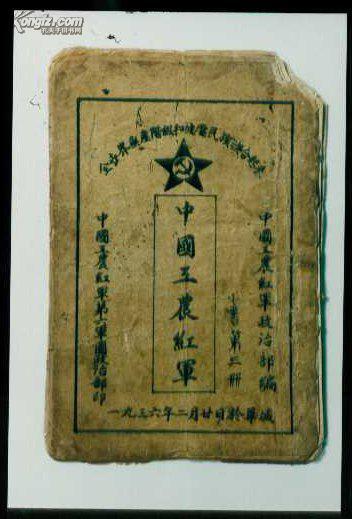 Kongfz.com
孔夫子旧书网
全世界無產階級和被壓民族聯合起來
中國工農紅軍政治部編
中國工農紅軍
中國工農紅軍第軍團政治部印
一九三六年二月廿日於